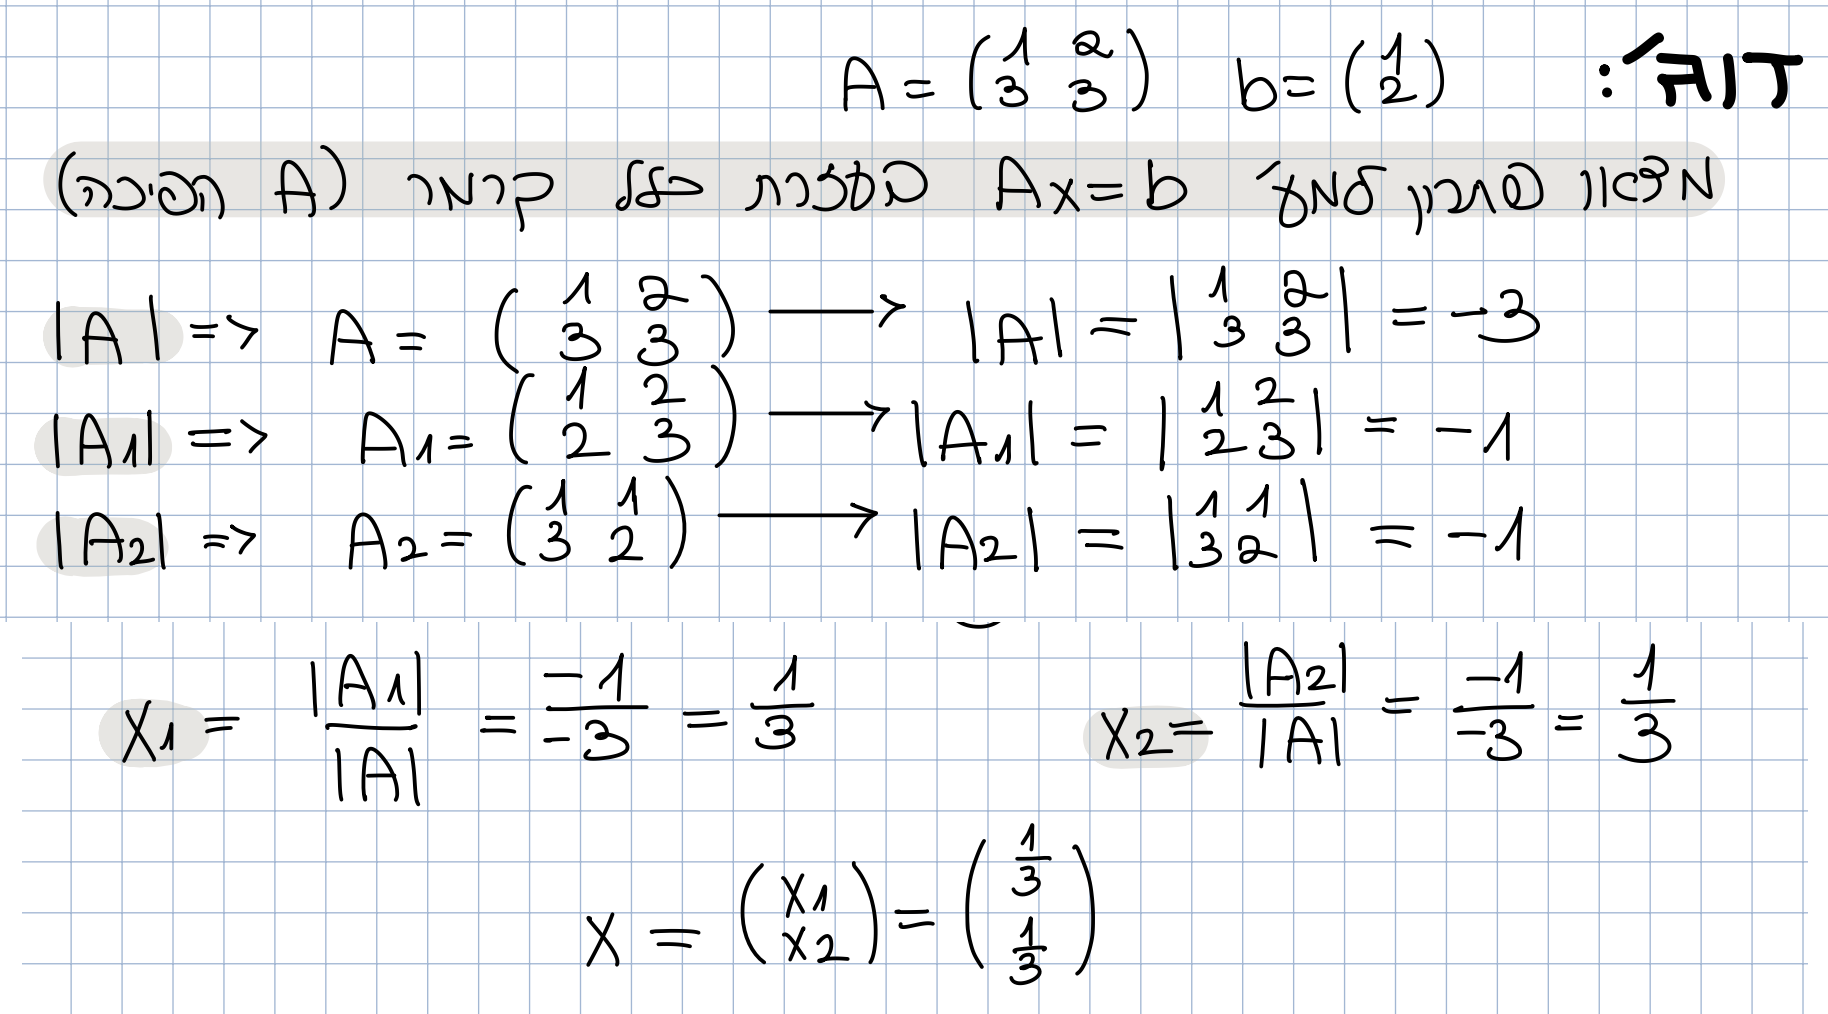 דוג׳: A = (1 2 / 3 3) b = (1 / 2)
מצאו פתרון למע׳ Ax=b בעזרת כלל קרמר (A הפיכה)
|A| => A = (1 2 / 3 3) → |A| = |1 2 / 3 3| = -3
|A1| => A1 = (1 2 / 2 3) → |A1| = |1 2 / 2 3| = -1
|A2| => A2 = (1 1 / 3 2) → |A2| = |1 1 / 3 2| = -1
x1 = |A1| / |A| = -1 / -3 = 1/3 x2 = |A2| / |A| = -1 / -3 = 1/3
x = (x1 / x2) = (1/3 / 1/3)